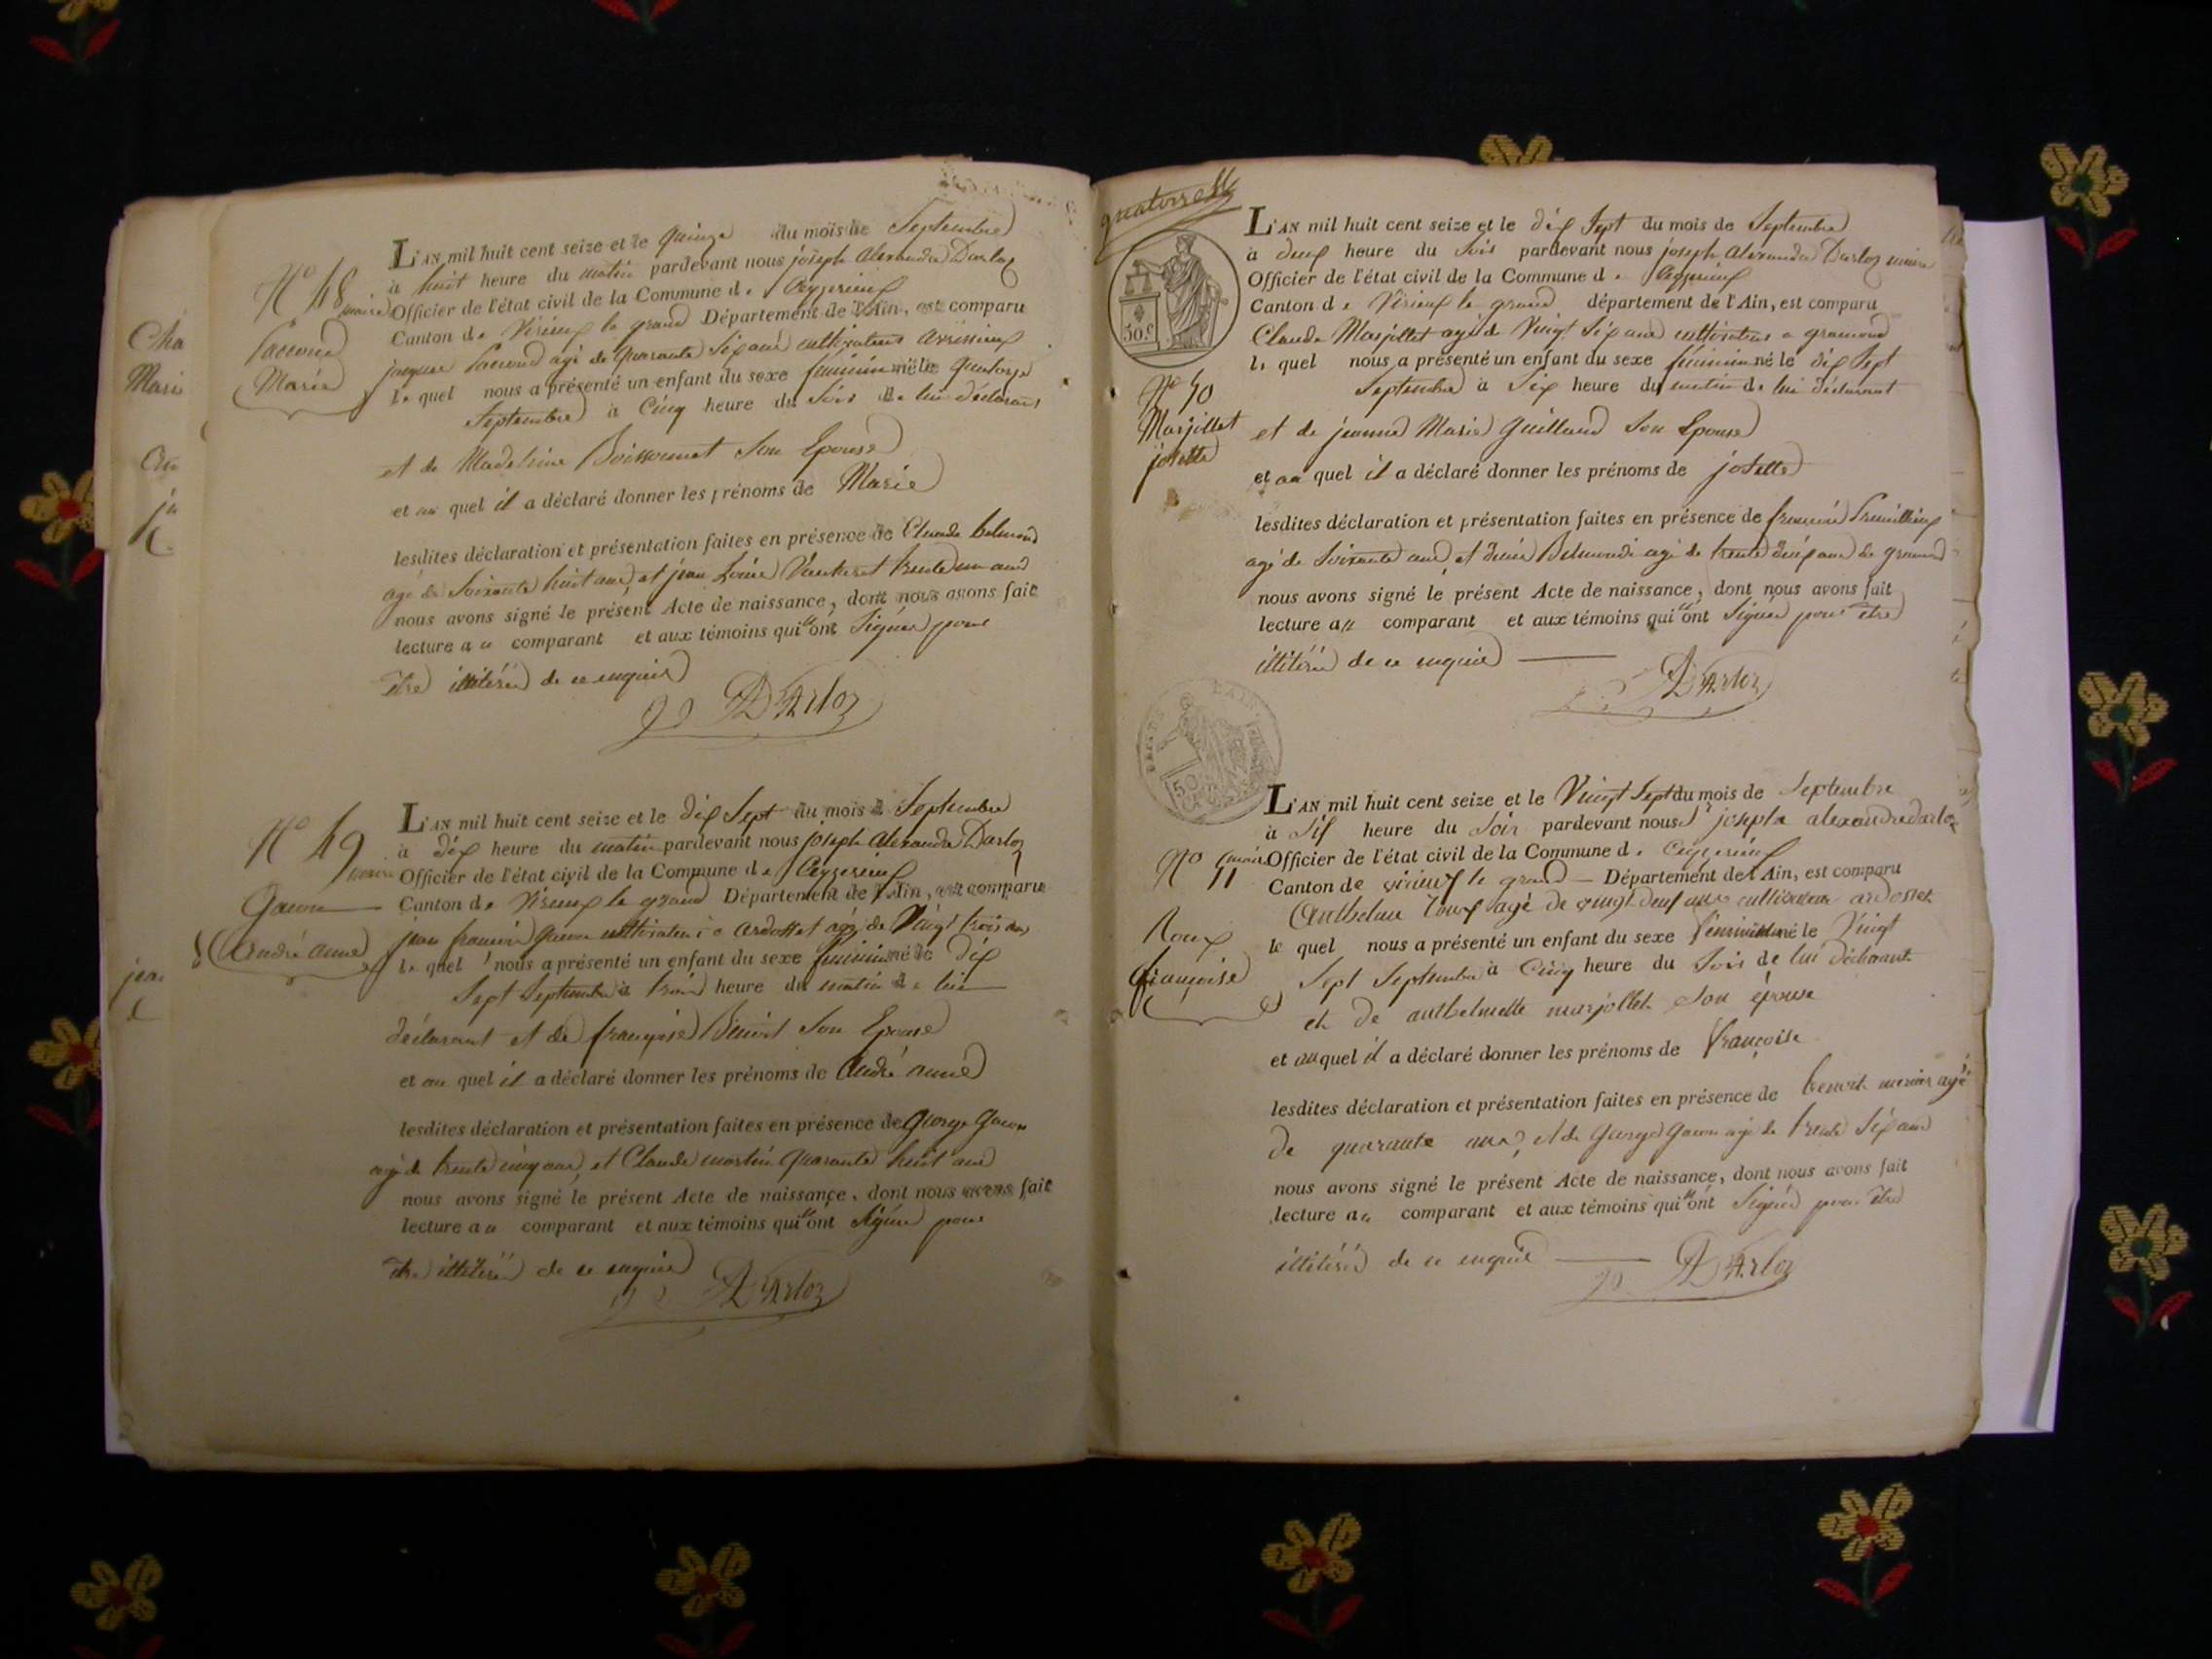 L'AN mil huit cent seize et le quinze du mois de Septembre
à huit heure du matin pardevant nous joseph alexandre Darloz
N° 48
maire Officier de l'état civil de la Commune de Ceyzerieux
Canton de Virieux le grand Département de l'Ain, est comparu
Marie
jacques agé de quarante six ans cultivateur
le quel nous a présenté un enfant du sexe feminin né le quatorze
Septembre à Cinq heure du Soir de lui déclarant
et de Madelaine Boissonnet Son Epouse
et au quel il a déclaré donner les prénoms de Marie
lesdites déclaration et présentation faites en présence de Claude
agé de Soixante huit ans et jean trente un ans
nous avons signé le présent Acte de naissance, dont nous avons fait
lecture au comparant et aux témoins qui n'ont Signés pour
être illitérés de ce enquis
DArloz
L'AN mil huit cent seize et le dix Sept du mois de Septembre
à dix heure du matin pardevant nous joseph alexandre Darloz
N° 49
maire Officier de l'état civil de la Commune de Ceyzerieux
Canton de Virieux le grand Département de l'Ain, est comparu
Gacon
andré anne
jean françois Gacon cultivateur à ardosset agé de Vingt trois ans
le quel nous a présenté un enfant du sexe feminin né le dix
Sept Septembre à trois heure du matin de lui
déclarant et de françoise Benoit Son Epouse
et au quel il a déclaré donner les prénoms de André anne
lesdites déclaration et présentation faites en présence de George Gacon
agé de trente cinq ans, et Claude martin quarante huit ans
nous avons signé le présent Acte de naissance, dont nous avons fait
lecture au comparant et aux témoins qui n'ont Signés pour
être illitérés de ce enquis
DArloz
quatorze
50 c.
L'AN mil huit cent seize et le dix Sept du mois de Septembre
à deux heure du Soir pardevant nous joseph alexandre Darloz maire
Officier de l'état civil de la Commune de Ceyzerieux
Canton de Virieux le grand département de l'Ain, est comparu
Claude Marjollet agé de Vingt Six ans cultivateur a gramond
le quel nous a présenté un enfant du sexe feminin né le dix Sept
Septembre à Six heure du matin de lui déclarant
N° 50
Marjollet
josette
et de jeanne Marie Guilland Son Epouse
et au quel il a déclaré donner les prénoms de josette
lesdites déclaration et présentation faites en présence de françois
agé de Soixante ans et agé de trente ans de gramond
nous avons signé le présent Acte de naissance, dont nous avons fait
lecture au comparant et aux témoins qui n'ont Signés pour être
illitérés de ce enquis
DArloz
50
L'AN mil huit cent seize et le Vingt Sept du mois de Septembre
à Six heure du Soir pardevant nous joseph alexandre darloz
N° 51
maire Officier de l'état civil de la Commune de Ceyzerieux
Canton de virieux le grand Département de l'Ain, est comparu
Anthelme roux agé de vingt deux ans cultivateur ardosset
Roux
françoise
le quel nous a présenté un enfant du sexe feminin né le Vingt
Sept Septembre à Cinq heure du Soir de lui déclarant
et de anthelmette marjollet Son épouse
et auquel il a déclaré donner les prénoms de françoise
lesdites déclaration et présentation faites en présence de benoit mercier agé
de quarante ans, et de George Gacon agé de trente Six ans
nous avons signé le présent Acte de naissance, dont nous avons fait
lecture au comparant et aux témoins qui n'ont Signés pour être
illitérés de ce enquis
DArloz